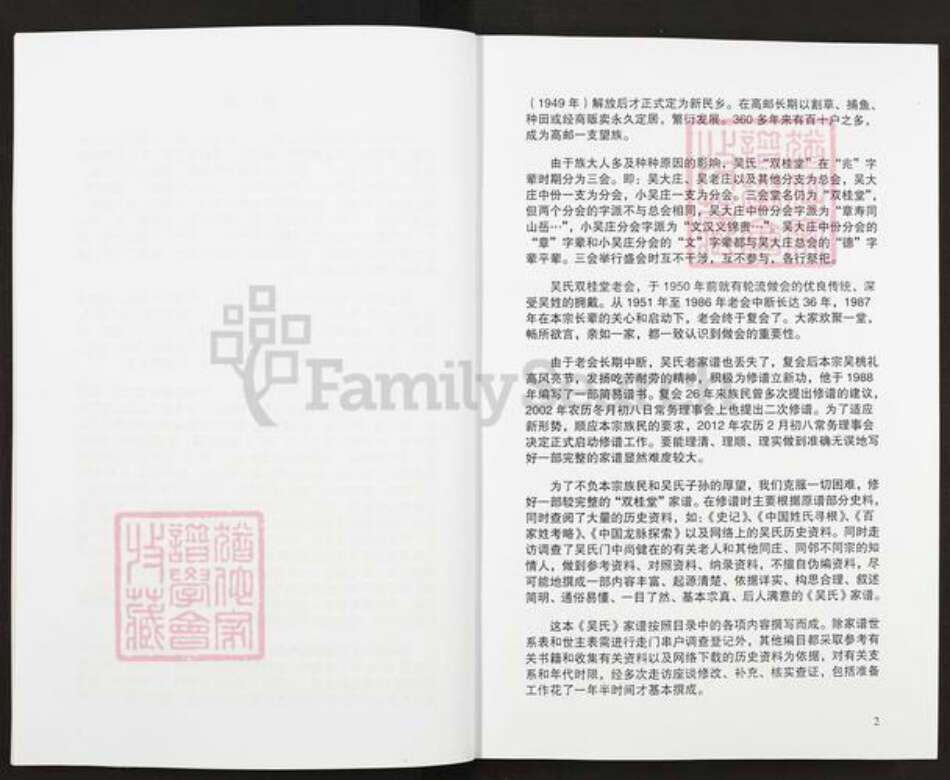 （1949 年）解放后才正式定为新民乡。在高邮长期以割草、捕鱼、
种田或经商贩卖永久定居，繁衍发展。360 多年来有百十户之多，
成为高邮一支望族。
由于族大人多及种种原因的影响，吴氏“双桂堂”在“兆”字
辈时期分为三会。即：吴大庄、吴老庄以及其他分支为总会，吴大
庄中份一支为分会，小吴庄一支为分会。三会堂名仍为“双桂堂”，
但两个分会的字派不与总会相同，吴大庄中份分会字派为“章寿同
山岳…”，小吴庄分会字派为“文汉义锦贵…”。吴大庄中份分会的
“章”字辈和小吴庄分会的“文”字辈都与吴大庄总会的“德”字
辈平辈。三会举行盛会时互不干涉，互不参与，各行祭祀。
吴氏双桂堂老会，于 1950 年前就有轮流做会的优良传统、深
受吴姓的拥戴。从 1951 年至 1986 年老会中断长达 36 年，1987
年在本宗长辈的关心和启动下，老会终于复会了。大家欢聚一堂，
畅所欲言，亲如一家，都一致认识到做会的重要性。
由于老会长期中断，吴氏老家谱也丢失了，复会后本宗吴桃礼
高风亮节，发扬吃苦耐劳的精神，积极为修谱立新功，他于 1988
年编写了一部简易谱书。复会 26 年来族民曾多次提出修谱的建议，
2002 年农历冬月初八日常务理事会上也提出二次修谱。为了适应
新形势，顺应本宗族民的要求，2012 年农历 2 月初八常务理事会
决定正式启动修谱工作。要能理清、理顺、理实做到准确无误地写
好一部完整的家谱显然难度较大。
为了不负本宗族民和吴氏子孙的厚望，我们克服一切困难，修
好一部较完整的“双桂堂”家谱。在修谱时主要根据原谱部分史料，
同时查阅了大量的历史资料，如：《史记》、《中国姓氏寻根》、《百
家姓考略》、《中国龙脉探索》以及网络上的吴氏历史资料。同时走
访调查了吴氏门中尚健在的有关老人和其他同庄、同邻不同宗的知
情人，做到参考资料、对照资料、纳录资料，不擅自伪编资料，尽
可能地撰成一部内容丰富、起源清楚、依据详实、构思合理、叙述
简明、通俗易懂、一目了然、基本求真、后人满意的《吴氏》家谱。
这本《吴氏》家谱按照目录中的各项内容撰写而成。除家谱世
系表和世主表需进行走门串户调查登记外，其他编目都采取参考有
关书籍和收集有关资料以及网络下载的历史资料为依据，对有关支
系和年代时限，经多次走访座谈修改、补充、核实查证，包括准备
工作花了一年半时间才基本撰成。
2
FamilySearch
猶他家
譜學會
收藏